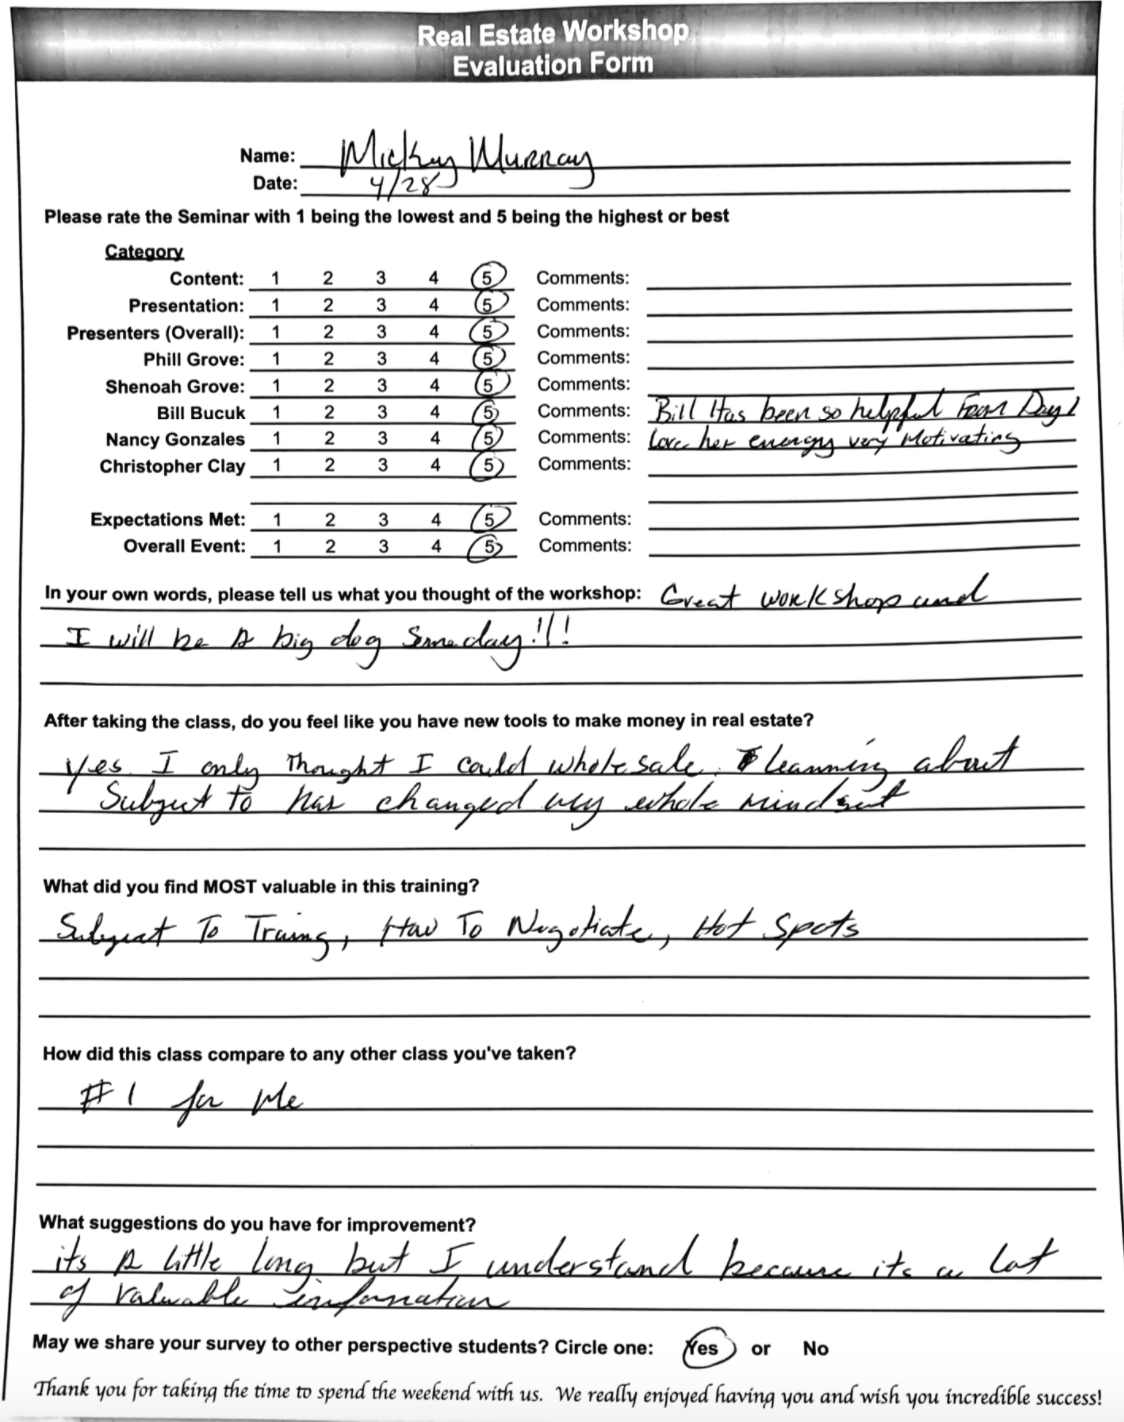 Real Estate Workshop
Evaluation Form
Name: Mickey Murray
Date: 4/28
Please rate the Seminar with 1 being the lowest and 5 being the highest or best
Category
Content: 1 2 3 4 5 Comments:
Presentation: 1 2 3 4 5 Comments:
Presenters (Overall): 1 2 3 4 5 Comments:
Phill Grove: 1 2 3 4 5 Comments:
Shenoah Grove: 1 2 3 4 5 Comments:
Bill Bucuk 1 2 3 4 5 Comments: Bill Has been so helpful From Day 1
Nancy Gonzales 1 2 3 4 5 Comments: Love her energy very Motivating
Christopher Clay 1 2 3 4 5 Comments:
Expectations Met: 1 2 3 4 5 Comments:
Overall Event: 1 2 3 4 5 Comments:
In your own words, please tell us what you thought of the workshop: Great workshop and
I will be A big dog Someday!!!
After taking the class, do you feel like you have new tools to make money in real estate?
Yes. I only Thought I could wholesale. learning about
Subject to has changed my whole mindset
What did you find MOST valuable in this training?
Subject To Traing, How To Negotiate, Hot Spots
How did this class compare to any other class you've taken?
#1 for Me
What suggestions do you have for improvement?
its A little long but I understand because its a lot
of valuable information
May we share your survey to other perspective students? Circle one: Yes or No
Thank you for taking the time to spend the weekend with us. We really enjoyed having you and wish you incredible success!